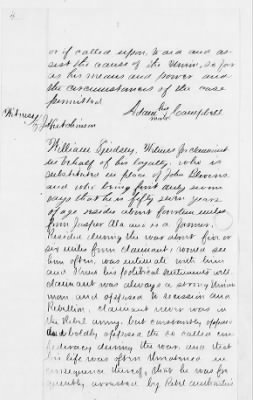 or if called upon, to aid and as-
sist the cause of the Union, so far
as his means and power and
the circumstances of the case
permitted
his
Adam Campbell
mark
Witness
Hutchinson
William Lindsey, Witness for claimant
in behalf of his loyalty, who is
substituted in place of John Stevens
and who being first duly sworn
says that he is fifty seven years
of age resides about fourteen miles
from Jasper Ala and is a farmer,
Resided during the war about five or
six miles from claimant, would see
him often, was intimate with him
and knew his political sentiments well
claimant was always a strong Union
man and opposed to secession and
Rebellion, claimant never was in
the Rebel army, but constantly opposed
and boldly opposed the so called con-
federacy during the war, and that
his life was often threatened in
consequence thereof, that he was fre-
quently arrested by Rebel authorities